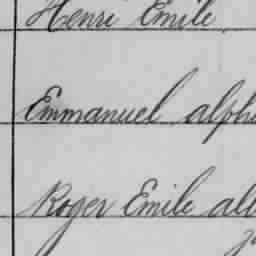 Henri Emile
Emmanuel alph
Roger Emile